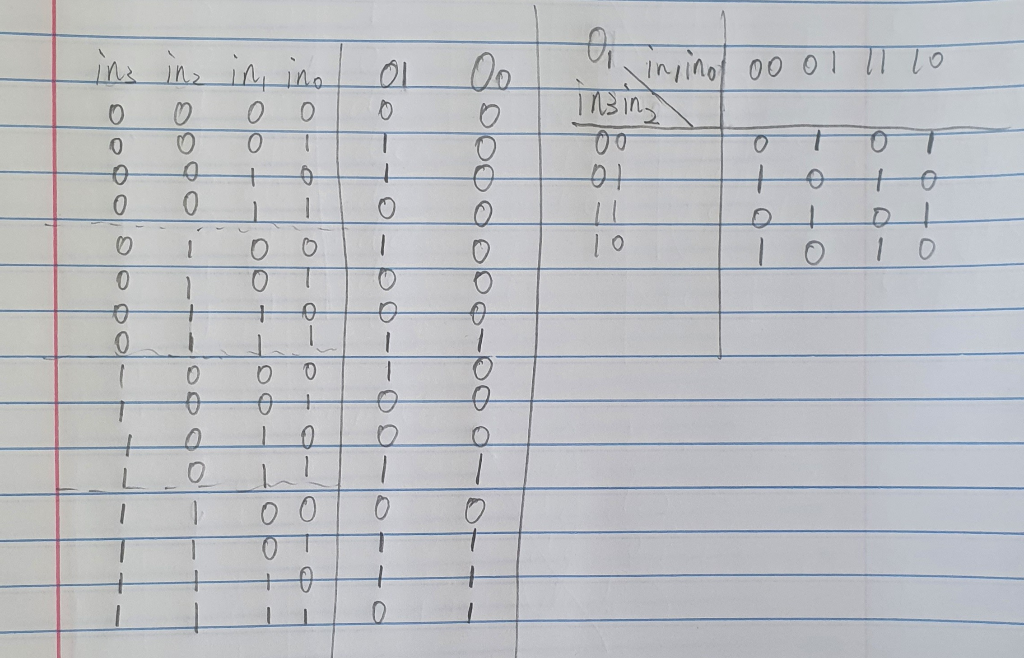 in3 in2 in1 in0 O1 O0
0 0 0 0 0 0
0 0 0 1 1 0
0 0 1 0 1 0
0 0 1 1 0 0
0 1 0 0 1 0
0 1 0 1 0 0
0 1 1 0 0 0
0 1 1 1 1 1
1 0 0 0 1 0
1 0 0 1 0 0
1 0 1 0 0 0
1 0 1 1 1 1
1 1 0 0 0 0
1 1 0 1 1 1
1 1 1 0 1 1
1 1 1 1 0 1
O1 in1in0 00 01 11 10
in3in2
00 0 1 0 1
01 1 0 1 0
11 0 1 0 1
10 1 0 1 0